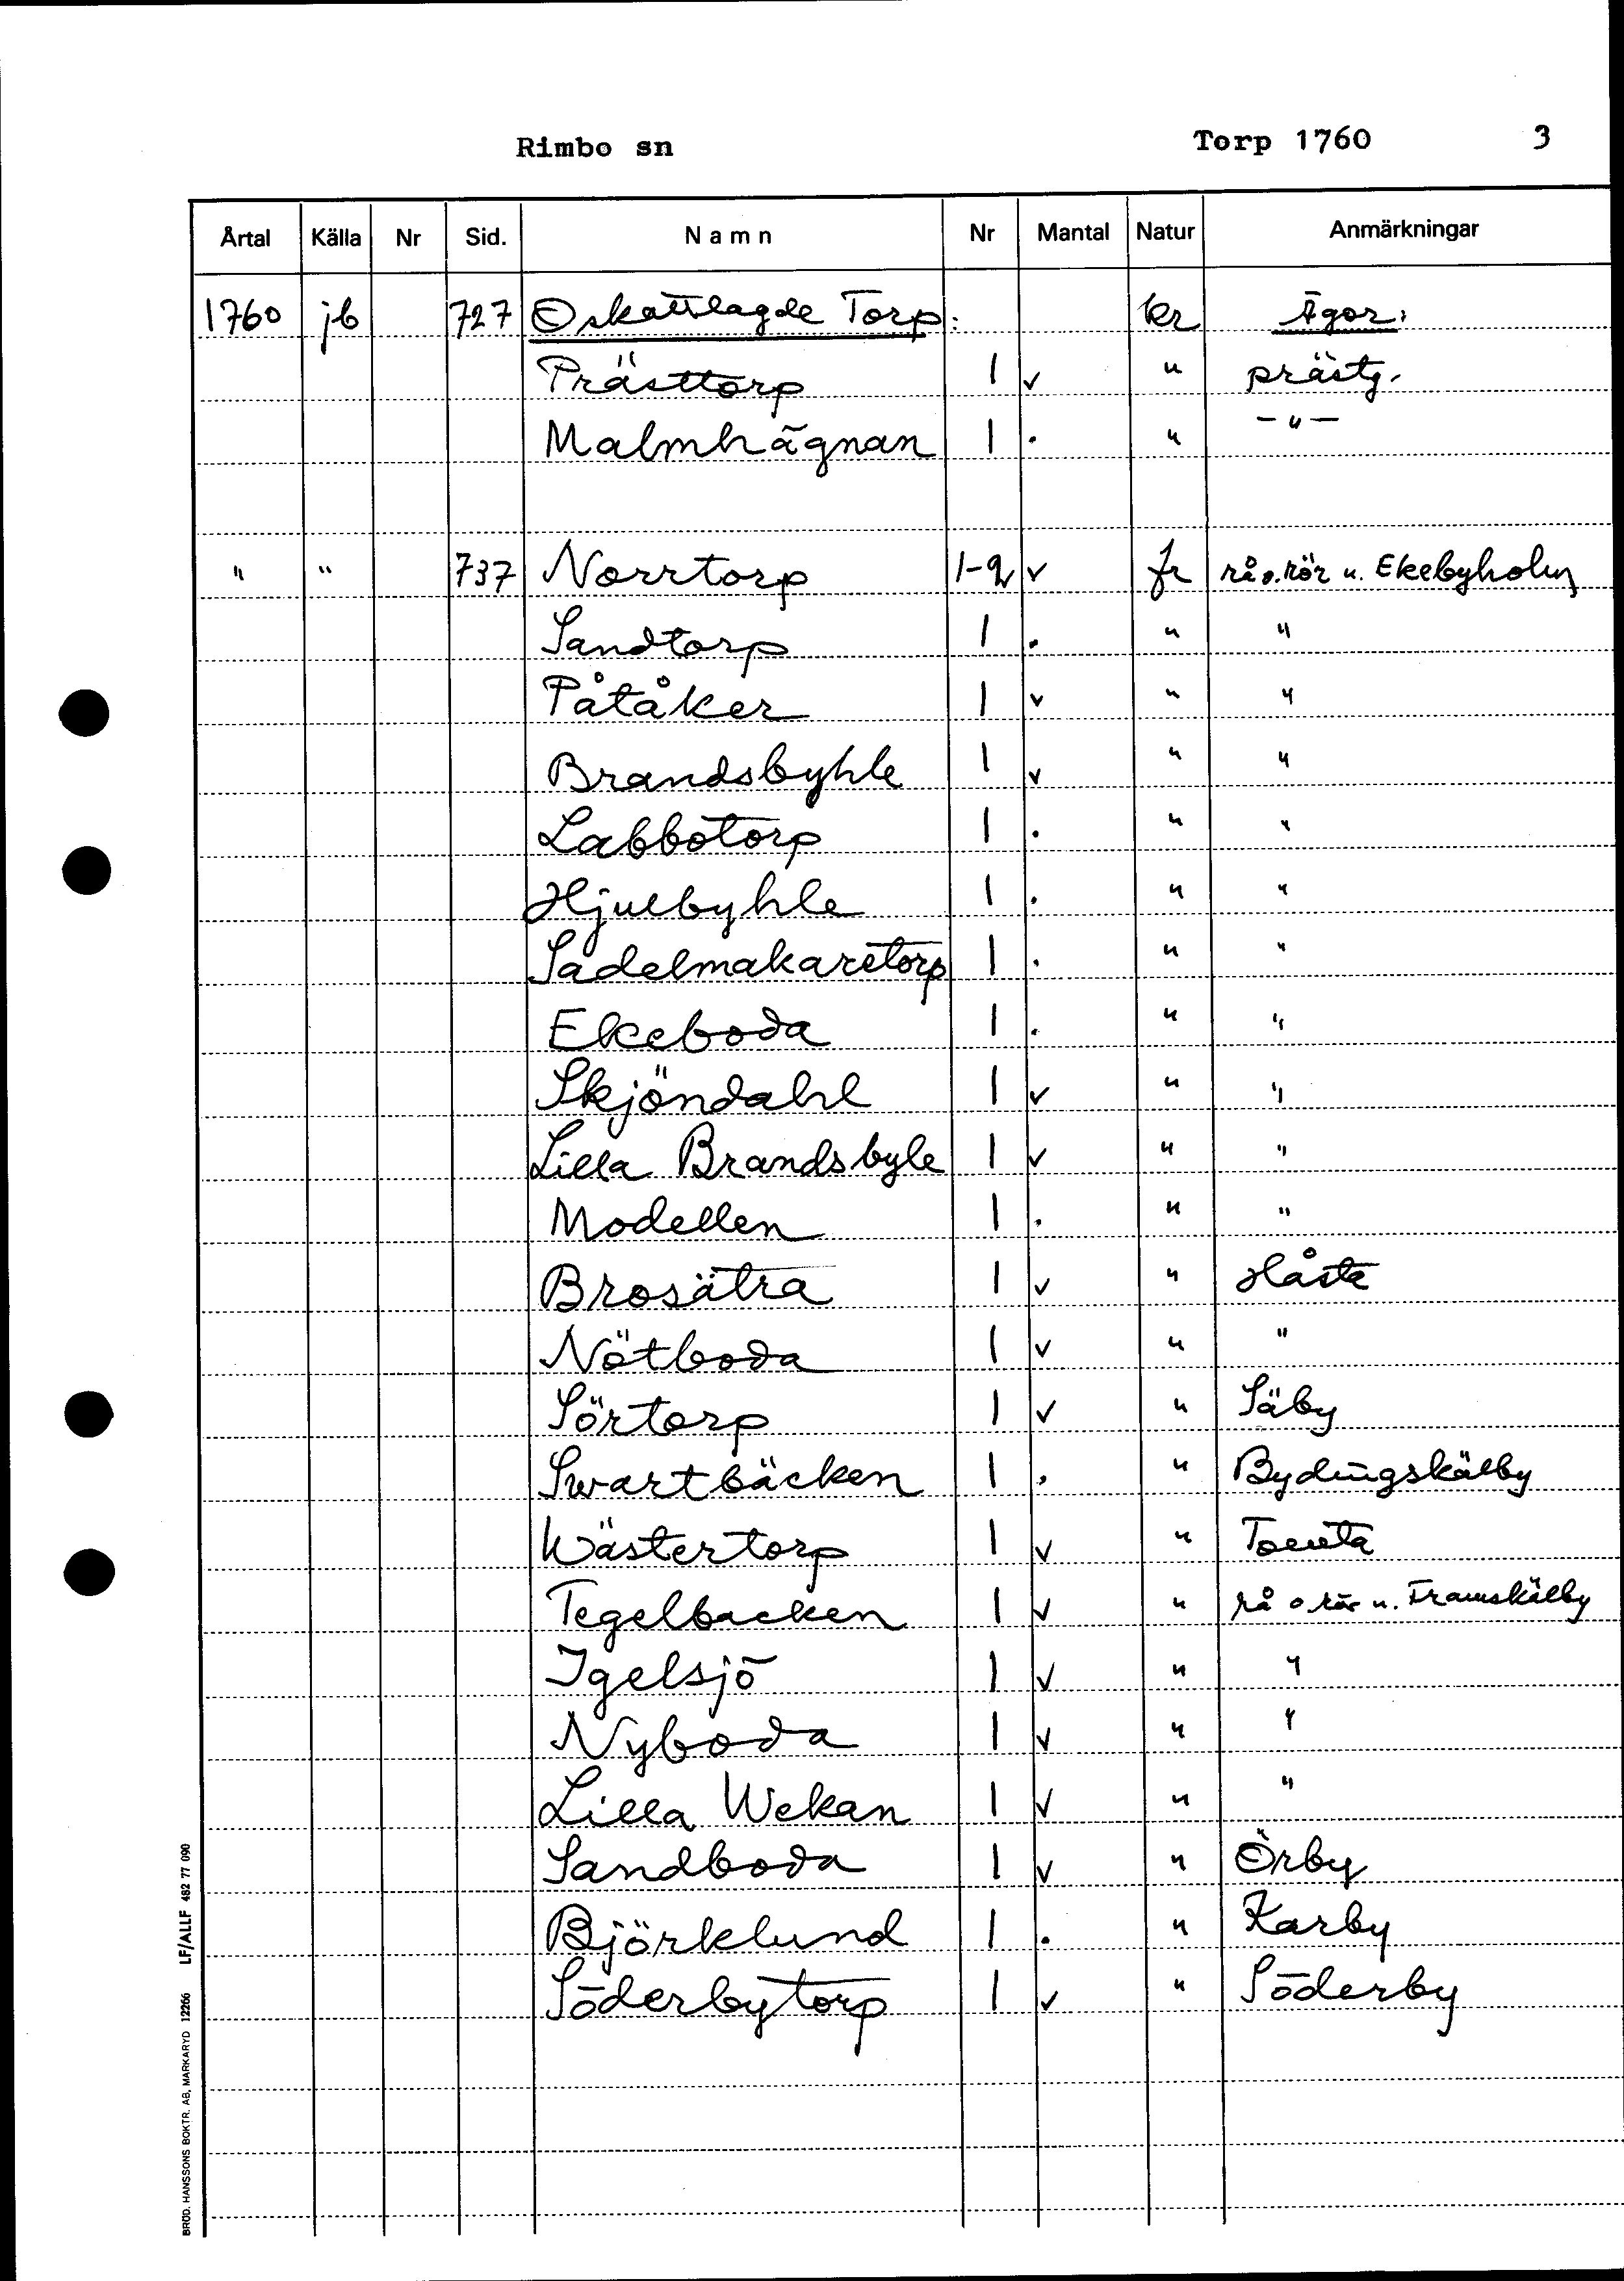 Rimbo sn Torp 1760 3
Årtal Källa Nr Sid. Namn Nr Mantal Natur Anmärkningar
1760 jb 727 Oskattlagde Torp: kr Ägor:
Prästtorp 1 v " prästg.
Malmhägnan 1 . " -"-
" " 737 Norrtorp 1-2 v fr rå o. rör u. Ekebyholm
Sandtorp 1 . " "
Påtåker 1 v " "
Brandsbyhle 1 v " "
Labbotorp 1 . " "
Hjulbyhle 1 . " "
Sadelmakaretorp 1 . " "
Ekeboda 1 . " "
Skjöndahl 1 v " "
Lilla Brandsbyle 1 v " "
Modellen 1 . " "
Brosätra 1 v " Håsta
Nötboda 1 v " "
Sörtorp 1 v " Säby
Swartbäcken 1 . " Bydingskälby
Wästertorp 1 v "
Tegelbacken 1 v " rå o rör u. Framskälby
Igelsjö 1 v " "
Nyboda 1 v " "
Lilla Wekan 1 v " "
Sandboda 1 v " Örby
Björklund 1 . " Karby
Söderbytorp 1 v " Söderby
BRÖD. HANSSONS BOKTR. AB, MARKARYD 12266 LF/ALLF 482 77 090